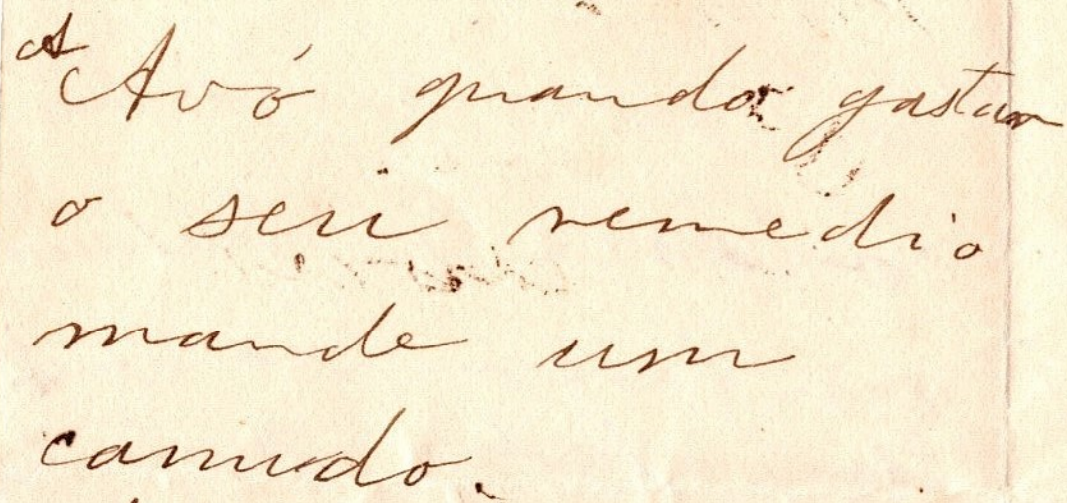 A Avó quando gastar
o seu remedio
mande um
canudo.